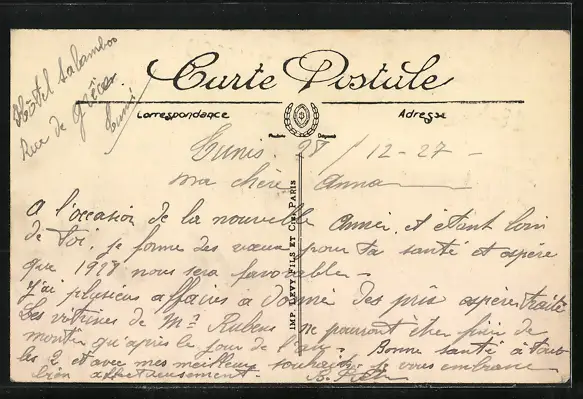 Hôtel Salamboo
Rue de Grèce
Tunis
Carte Postale
Correspondance
Adresse
Modèle Déposé
IMP. LEVY FILS ET CIE PARIS
Tunis. 28/12-27-
ma chère Anna
A l'occasion de la nouvelle Année, et étant loin
de toi, je forme des vœux pour ta santé et espère
que 1928 nous sera favorable.
J'ai plusieurs affaires à donné des prix espère traité
Les vitrines de Mr Rubens ne pourront être fini de
montir qu'après le jour de l'an. Bonne santé à tous
les 2 et avec mes meilleurs souhaits je vous embrasse
bien affectueusement.